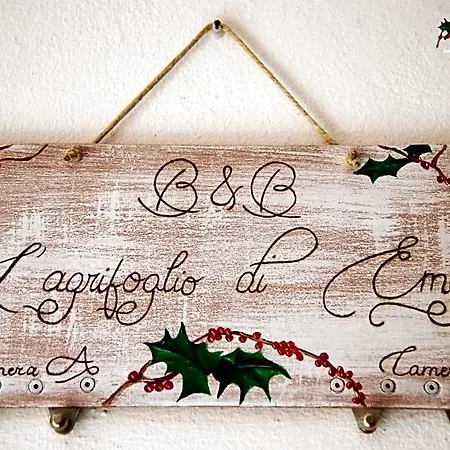 B & B
L'agrifoglio di Em
mera A Came